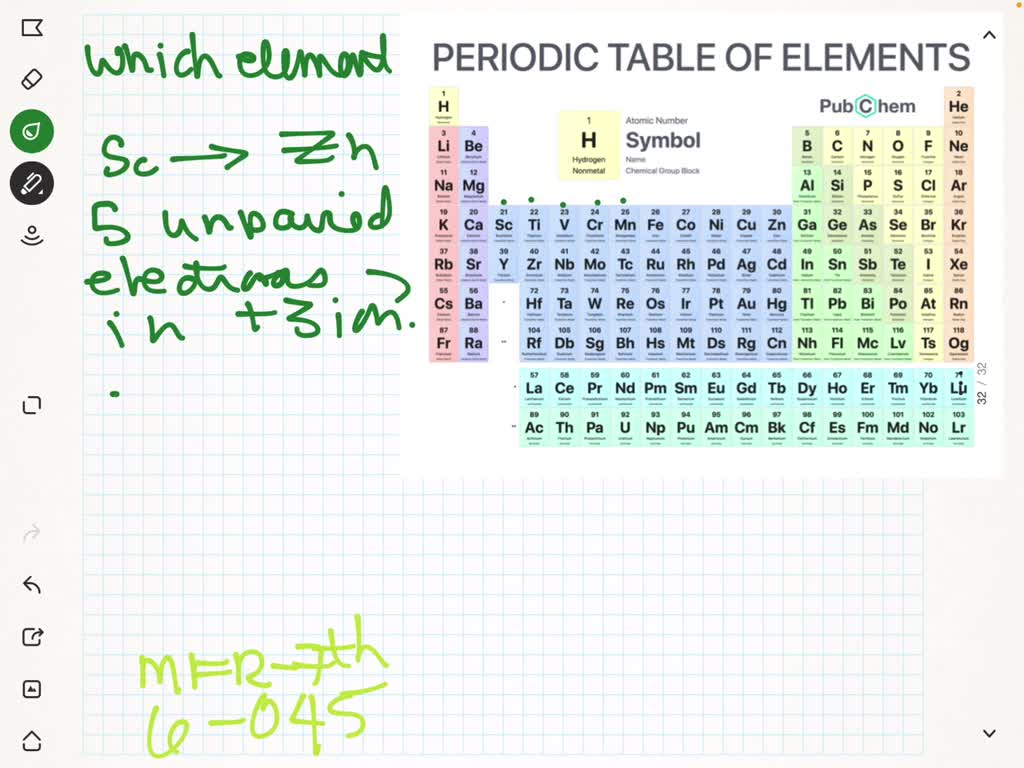 which element
Sc → Zn
5 unpaired
electrons
in +3 ion.
MFR → 7th
6 - 045
PERIODIC TABLE OF ELEMENTS
PubChem
1
H
Hydrogen
Nonmetal
Atomic Number
Symbol
Name
Chemical Group Block
1 2
H He
3 4 5 6 7 8 9 10
Li Be B C N O F Ne
11 12 13 14 15 16 17 18
Na Mg Al Si P S Cl Ar
19 20 21 22 23 24 25 26 27 28 29 30 31 32 33 34 35 36
K Ca Sc Ti V Cr Mn Fe Co Ni Cu Zn Ga Ge As Se Br Kr
37 38 39 40 41 42 43 44 45 46 47 48 49 50 51 52 53 54
Rb Sr Y Zr Nb Mo Tc Ru Rh Pd Ag Cd In Sn Sb Te I Xe
55 56 72 73 74 75 76 77 78 79 80 81 82 83 84 85 86
Cs Ba Hf Ta W Re Os Ir Pt Au Hg Tl Pb Bi Po At Rn
87 88 104 105 106 107 108 109 110 111 112 113 114 115 116 117 118
Fr Ra Rf Db Sg Bh Hs Mt Ds Rg Cn Nh Fl Mc Lv Ts Og
57 58 59 60 61 62 63 64 65 66 67 68 69 70 71
La Ce Pr Nd Pm Sm Eu Gd Tb Dy Ho Er Tm Yb Lu
89 90 91 92 93 94 95 96 97 98 99 100 101 102 103
Ac Th Pa U Np Pu Am Cm Bk Cf Es Fm Md No Lr
32 / 32